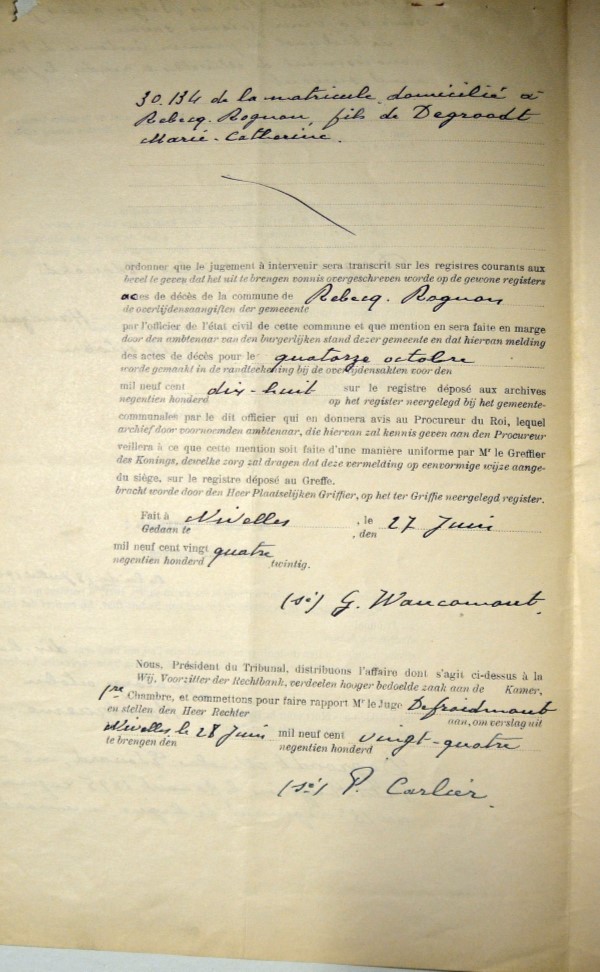 30.134 de la matricule, domicilié à
Rebecq-Rognon, fils de Degroodt
Marie-Catherine.
ordonner que le jugement à intervenir sera transcrit sur les registres courants aux
bevel te geven dat het uit te brengen vonnis overgeschreven worde op de gewone registers
actes de décès de la commune de Rebecq-Rognon
de overlijdensaangiften der gemeeente
par l'officier de l'état civil de cette commune et que mention en sera faite en marge
door den ambtenaar van den burgerlijken stand dezer gemeente en dat hiervan melding
des actes de décès pour le quatorze octobre
worde gemaakt in de randteekening bij de overlijdensakten voor den
mil neuf cent dix-huit sur le registre déposé aux archives
negentien honderd op het register neergelegd bij het gemeente-
communales par le dit officier qui en donnera avis au Procureur du Roi, lequel
archief door voornoemden ambtenaar, die hiervan zal kennis geven aan den Procureur
veillera à ce que cette mention soit faite d'une manière uniforme par Mr le Greffier
des Konings, dewelke zorg zal dragen dat deze vermelding op eenvormige wijze aange-
du siège, sur le registre déposé au Greffe.
bracht worde door den Heer Plaatselijken Griffier, op het ter Griffie neergelegd register.
Fait à Nivelles, le 27 Juin
Gedaan te , den
mil neuf cent vingt quatre
negentien honderd twintig.
(sé) G. Wancomont.
Nous, Président du Tribunal, distribuons l'affaire dont s'agit ci-dessus à la
Wij, Voorzitter der Rechtbank, verdeelen hooger bedoelde zaak aan de Kamer,
1re Chambre, et commettons pour faire rapport Mr le Juge Defroidmont
en stellen den Heer Rechter aan, om verslag uit
Nivelles le 28 Juin mil neuf cent vingt-quatre
te brengen den negentien honderd
(sé) P. Carlier.